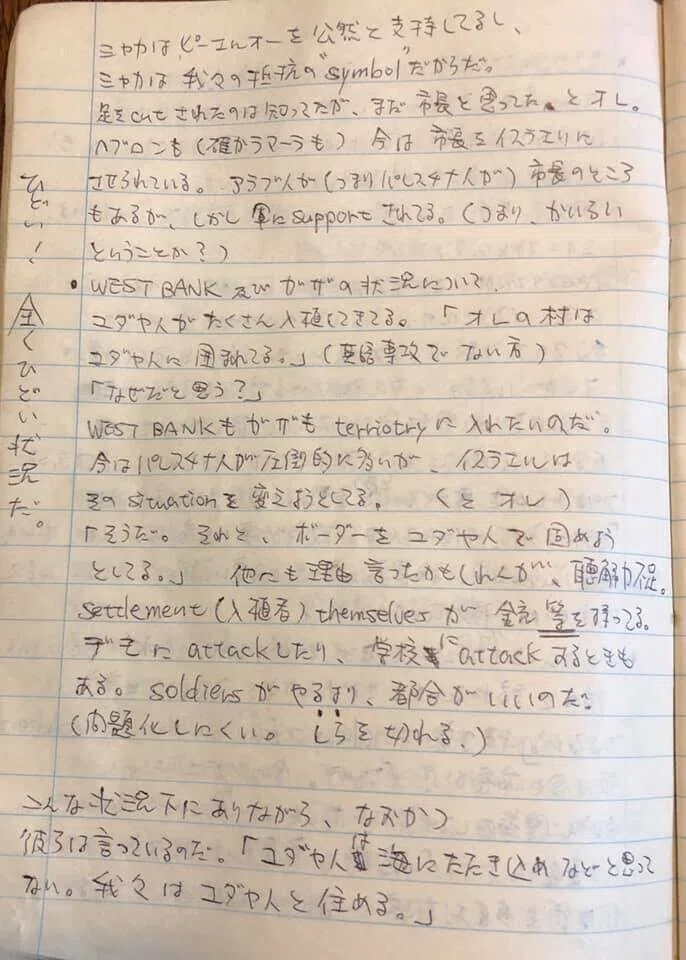 ミヤカはピーエルオーを公然と支持してるし、
ミヤカは我々の抵抗の"symbol"だからだ。
足をcutされたのは知ってたが、まだ市長と思ってた。とオレ。
ヘブロンも(確かラマーラも)今は市長をイスラエルに
させられている。アラブ人が(つまりパレスチナ人が)市長のところ
もあるが、しかし軍にsupportされてる。(つまり、かいらい
ということか?)
• WEST BANK 及びガザの状況について、
ユダヤ人がたくさん入植してきてる。「オレの村は
ユダヤ人に囲まれてる。」(英語専攻でない方)
「なぜだと思う?」
WEST BANKもガザもterriotryに入れたいのだ。
今はパレスチナ人が圧倒的に多いが、イスラエルは
そのsituationを変えようとしてる。 (とオレ)
「そうだ。それと、ボーダーをユダヤ人で固めよう
としてる。」 他にも理由言ったかもしれんが、聴解力不足。
settlement(入植者) themselves が 銃等を持ってる。
デモにattackしたり、学校にattackするときも
ある。soldiersがやるより、都合がいいのだ
(問題化しにくい。しらを切れる。)
こんな状況下にありながら、なおかつ
彼らは言っているのだ。「ユダヤ人は海にたたき込めなどと思って
ない。我々はユダヤ人と住める。」
ひどい!全くひどい状況だ。